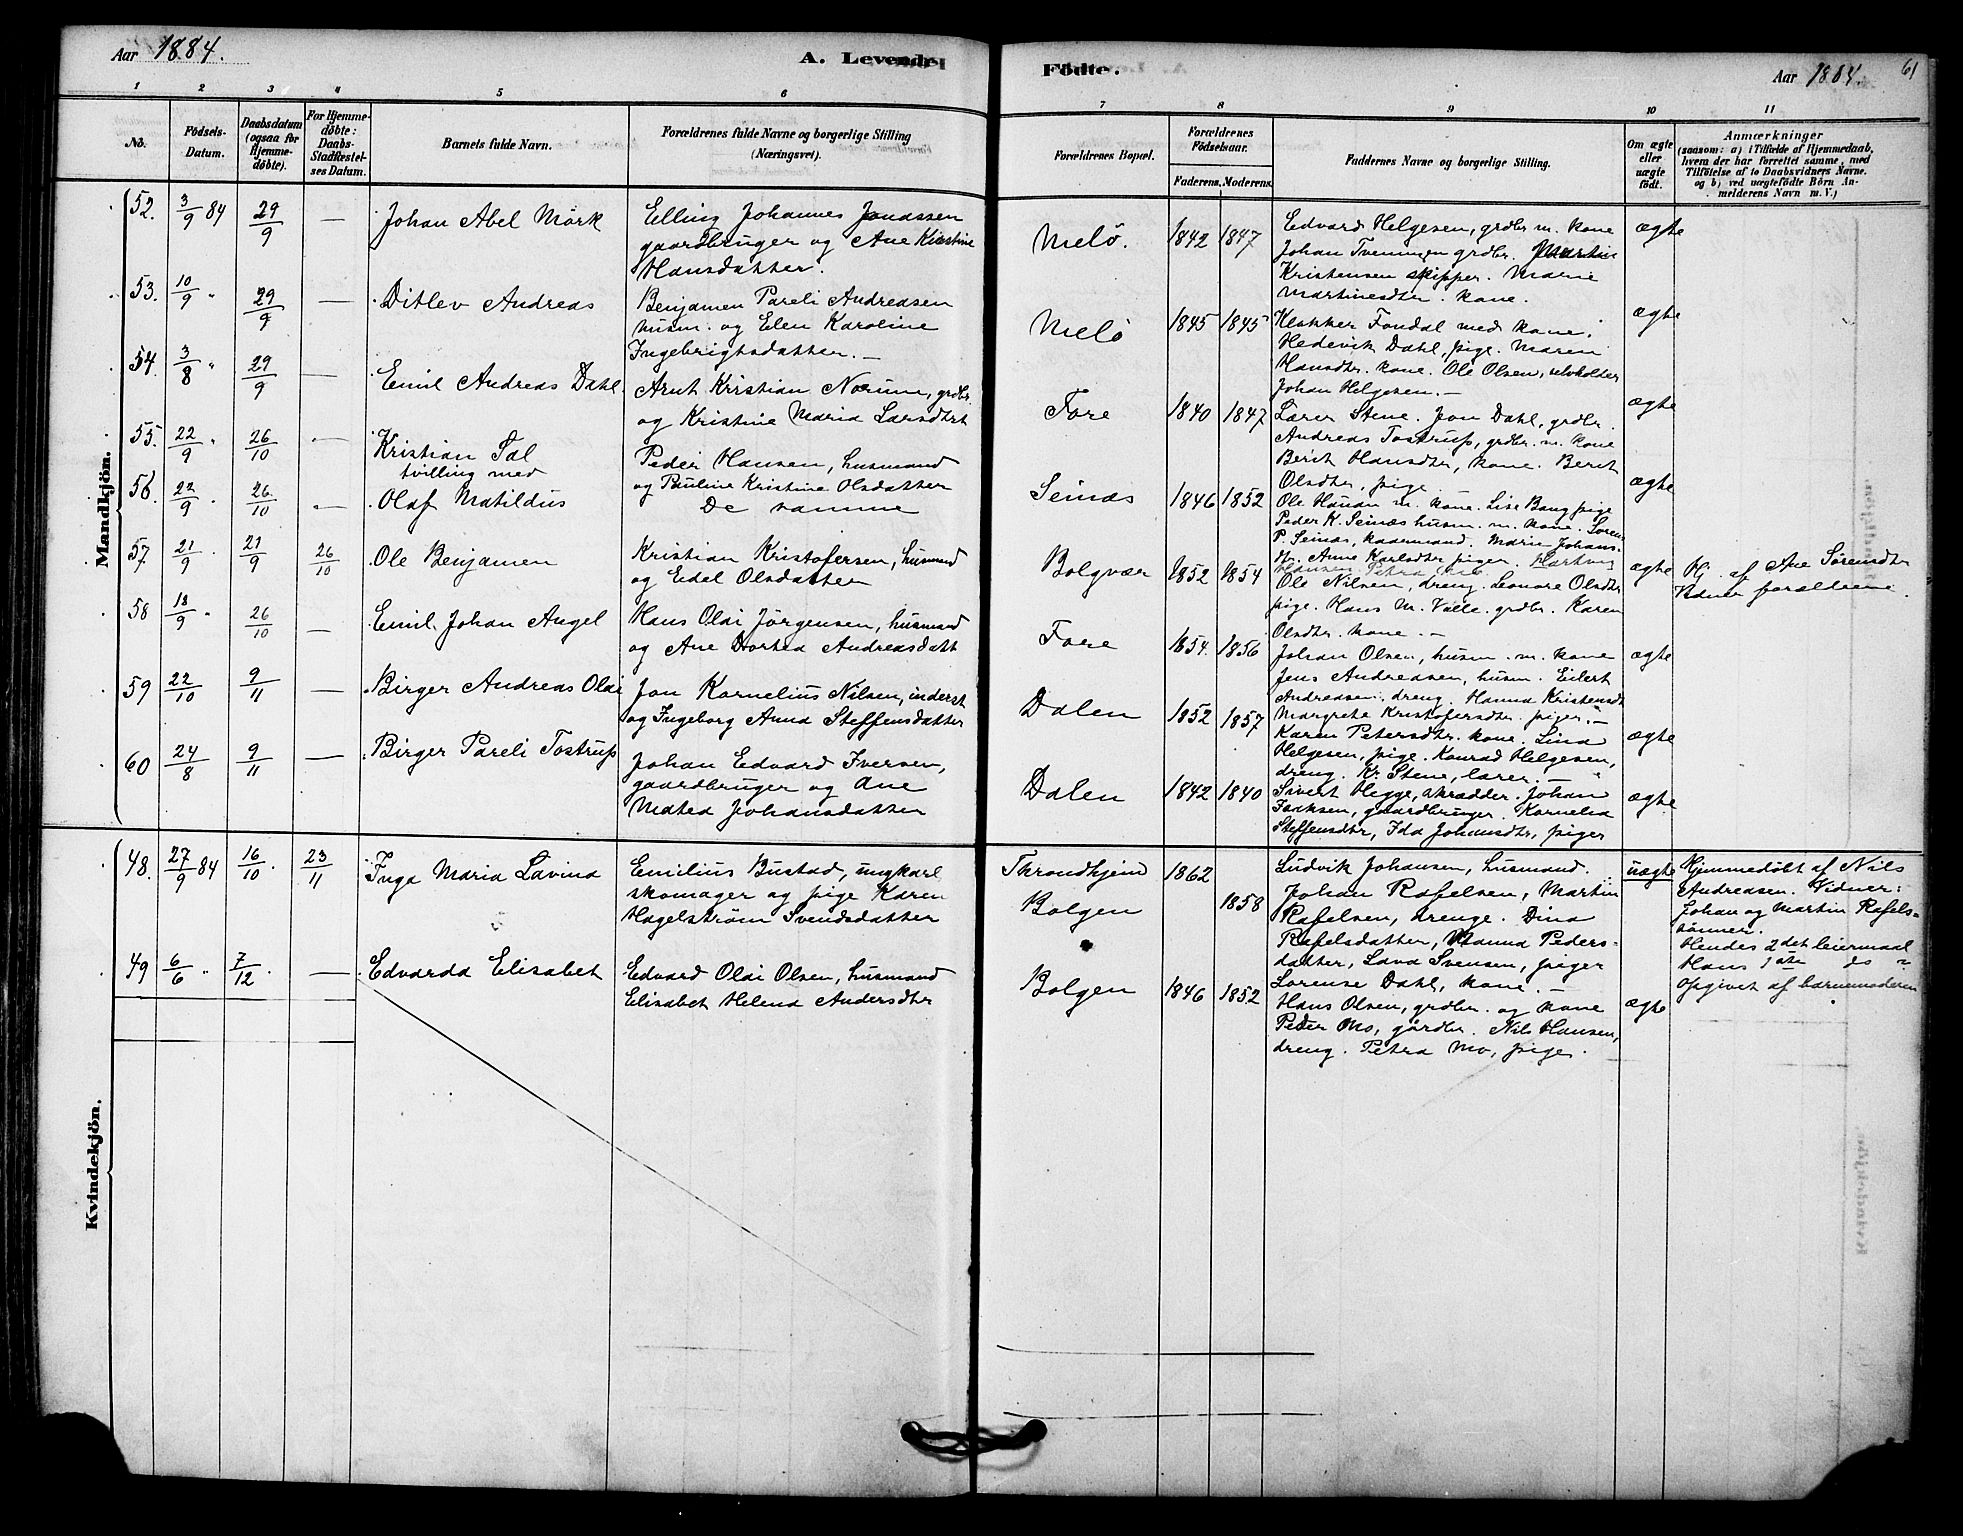 Aar 1884.
A. Levende
1 2 3 4 5 6
No.
Födsels-Datum.
Daabsdatum (ogsaa for Hjemmedöbte).
For Hjemmedöbte: Daabs-Stadfæstelses Datum.
Barnets fulde Navn.
Forældrenes fulde Navne og borgerlige Stilling
(Næringsvei).
Mandkjön.
52. 3/9 84 29/9 — Johan Abel Mörk
Elling Johannes Jonassen
gaardbruger og Ane Kirstine
Hansdatter.
53. 10/9 " 29/9 — Ditlev Andreas
Benjamen Pareli Andreasen
husm. og Elen Karoline
Ingebrigtsdatter. —
54. 3/8 " 29/9 — Emil Andreas Dahl.
Arnt Kristian Norum, grdbr.
og Kristine Maria Larsdtrt
55. 22/9 " 26/10 — Kristian Tal
tvilling med
Peder Hansen, husmand
og Pauline Kristine Olsdatter
56. 22/9 . 26/10 — Olaf Matildus
De samme
57 21/9 . 21/9 26/10 Ole Benjamen
Kristian Kristofersen, husmand
og Edel Olsdatter
58 18/9 " 26/10 — Emil Johan Angel
Hans Olai Jörgensen, husmand
og Ane Dortea Andreasdatt
59 22/10 9/11 — Birger Andreas Olai
Jon Kornelius Nilsen, inderst
og Ingeborg Anna Steffensdatter
60 24/8 9/11 — Birger Pareli Tostrup
Johan Edvard Iversen,
gaardbruger og Ane
Matea Johansdatter
Kvindekjön.
48. 27/9 84 16/10 23/11 Inga Maria Lavina
Emilius Bustad, ungkarl
skomager og pige Karen
Hagelström Svendsdatter
49 6/6 " 7/12 . — Edvarda Elisabet
Edvard Olai Olsen, husmand
Elisabet Helena Andersdtr
Födte.
Aar 1884. 61
7 8 9 10 11
Forældrenes Bopæl.
Forældrenes Födselsaar.
Faderens. Moderens.
Faddernes Navne og borgerlige Stilling.
Om ægte eller uægte födt.
Anmærkninger
(saasom: a) i Tilfælde af Hjemmedaab,
hvem der har forrettet samme, med
Tilföielse af to Daabsvidners Navne.
og b) ved uægtefödte Börn An-
melderens Navn m. V.)
Melö. 1842 1847
Edvard Helgesen, grdbr m. kone ægte
Johan Tveningen grdbr. Martin
Kristensen skipper. Marie
Martinesdtr. kone.
Melö 1845 1845
Klokker Fondal med kone, ægte
Hedevik Dahl, pige. Maren
Hansdtr. kone. Ole Olsen, selvholder
Johan Helgesen. —
Fore 1840 1847
Lærer Stene. Jon Dahl, grdbr. ægte
Andreas Tostrup, grdbr. m. kone
Berit Hansdtr, kone. Berit
Olsdtr, pige
Seinæs 1846 1852 ægte
Ole Hauan m. kone. Lise Bang pige
Peder K. Seinæs husm. m. kone. Soren
P. Seinæs, kaarmand. Marie Johans-
dtr. Anne Karlsdtr piger. Hartvig
Hansen, Petra
Bolgvær 1852 1854
Ole Nilsen, dreng. Leonore Olsdtr ægte
Hj. af Ane Sörensdtr
Vidner forældrene.
pige. Hans M. Valle. grdbr. Karen
Olsdtr. kone. —
Fore 1854. 1856
Johan Olsen, husm. m. kone ægte
Jens Andreasen, husm. Eilert
Andreasen. dreng. Hanna Kristensdt
Margrete Kristofersdtr. piger. —
Dalen 1852 1857
Karen Petersdtr. kone. Lina ægte
Helgesen, pige. Konrad Helgesen,
dreng. Kr. Stene, lærer. —
Dalen 1842 1840
Sivert Hegge, skrædder. Johan ægte
Isaksen, gaardbruger. Kornelia
Steffensdtr, Ida Johansdtr, piger
Throndhjem 1862
Bolgen 1858
Ludvik Johansen, husmand. uægte
Johan Rafelsen, Martin
Rafelsen, drenge. Dina
Rafelsdatter, Hanna Peders-
datter, Lava Svensen, piger
Lorense Dahl, kone. —
Hjemmedöbt af Nils
Andreasen. Vidner:
Johan og Martin Rafels-
sönner.
Hendes 2det leiermaal
Hans 1ste do
opgivet af barnemoderen
Bolgen 1846 1852
Hans Olsen, grdbr. og kone ægte
Peder Mo, gårdbr. Nils Hansen,
dreng. Petra Mo, pige.